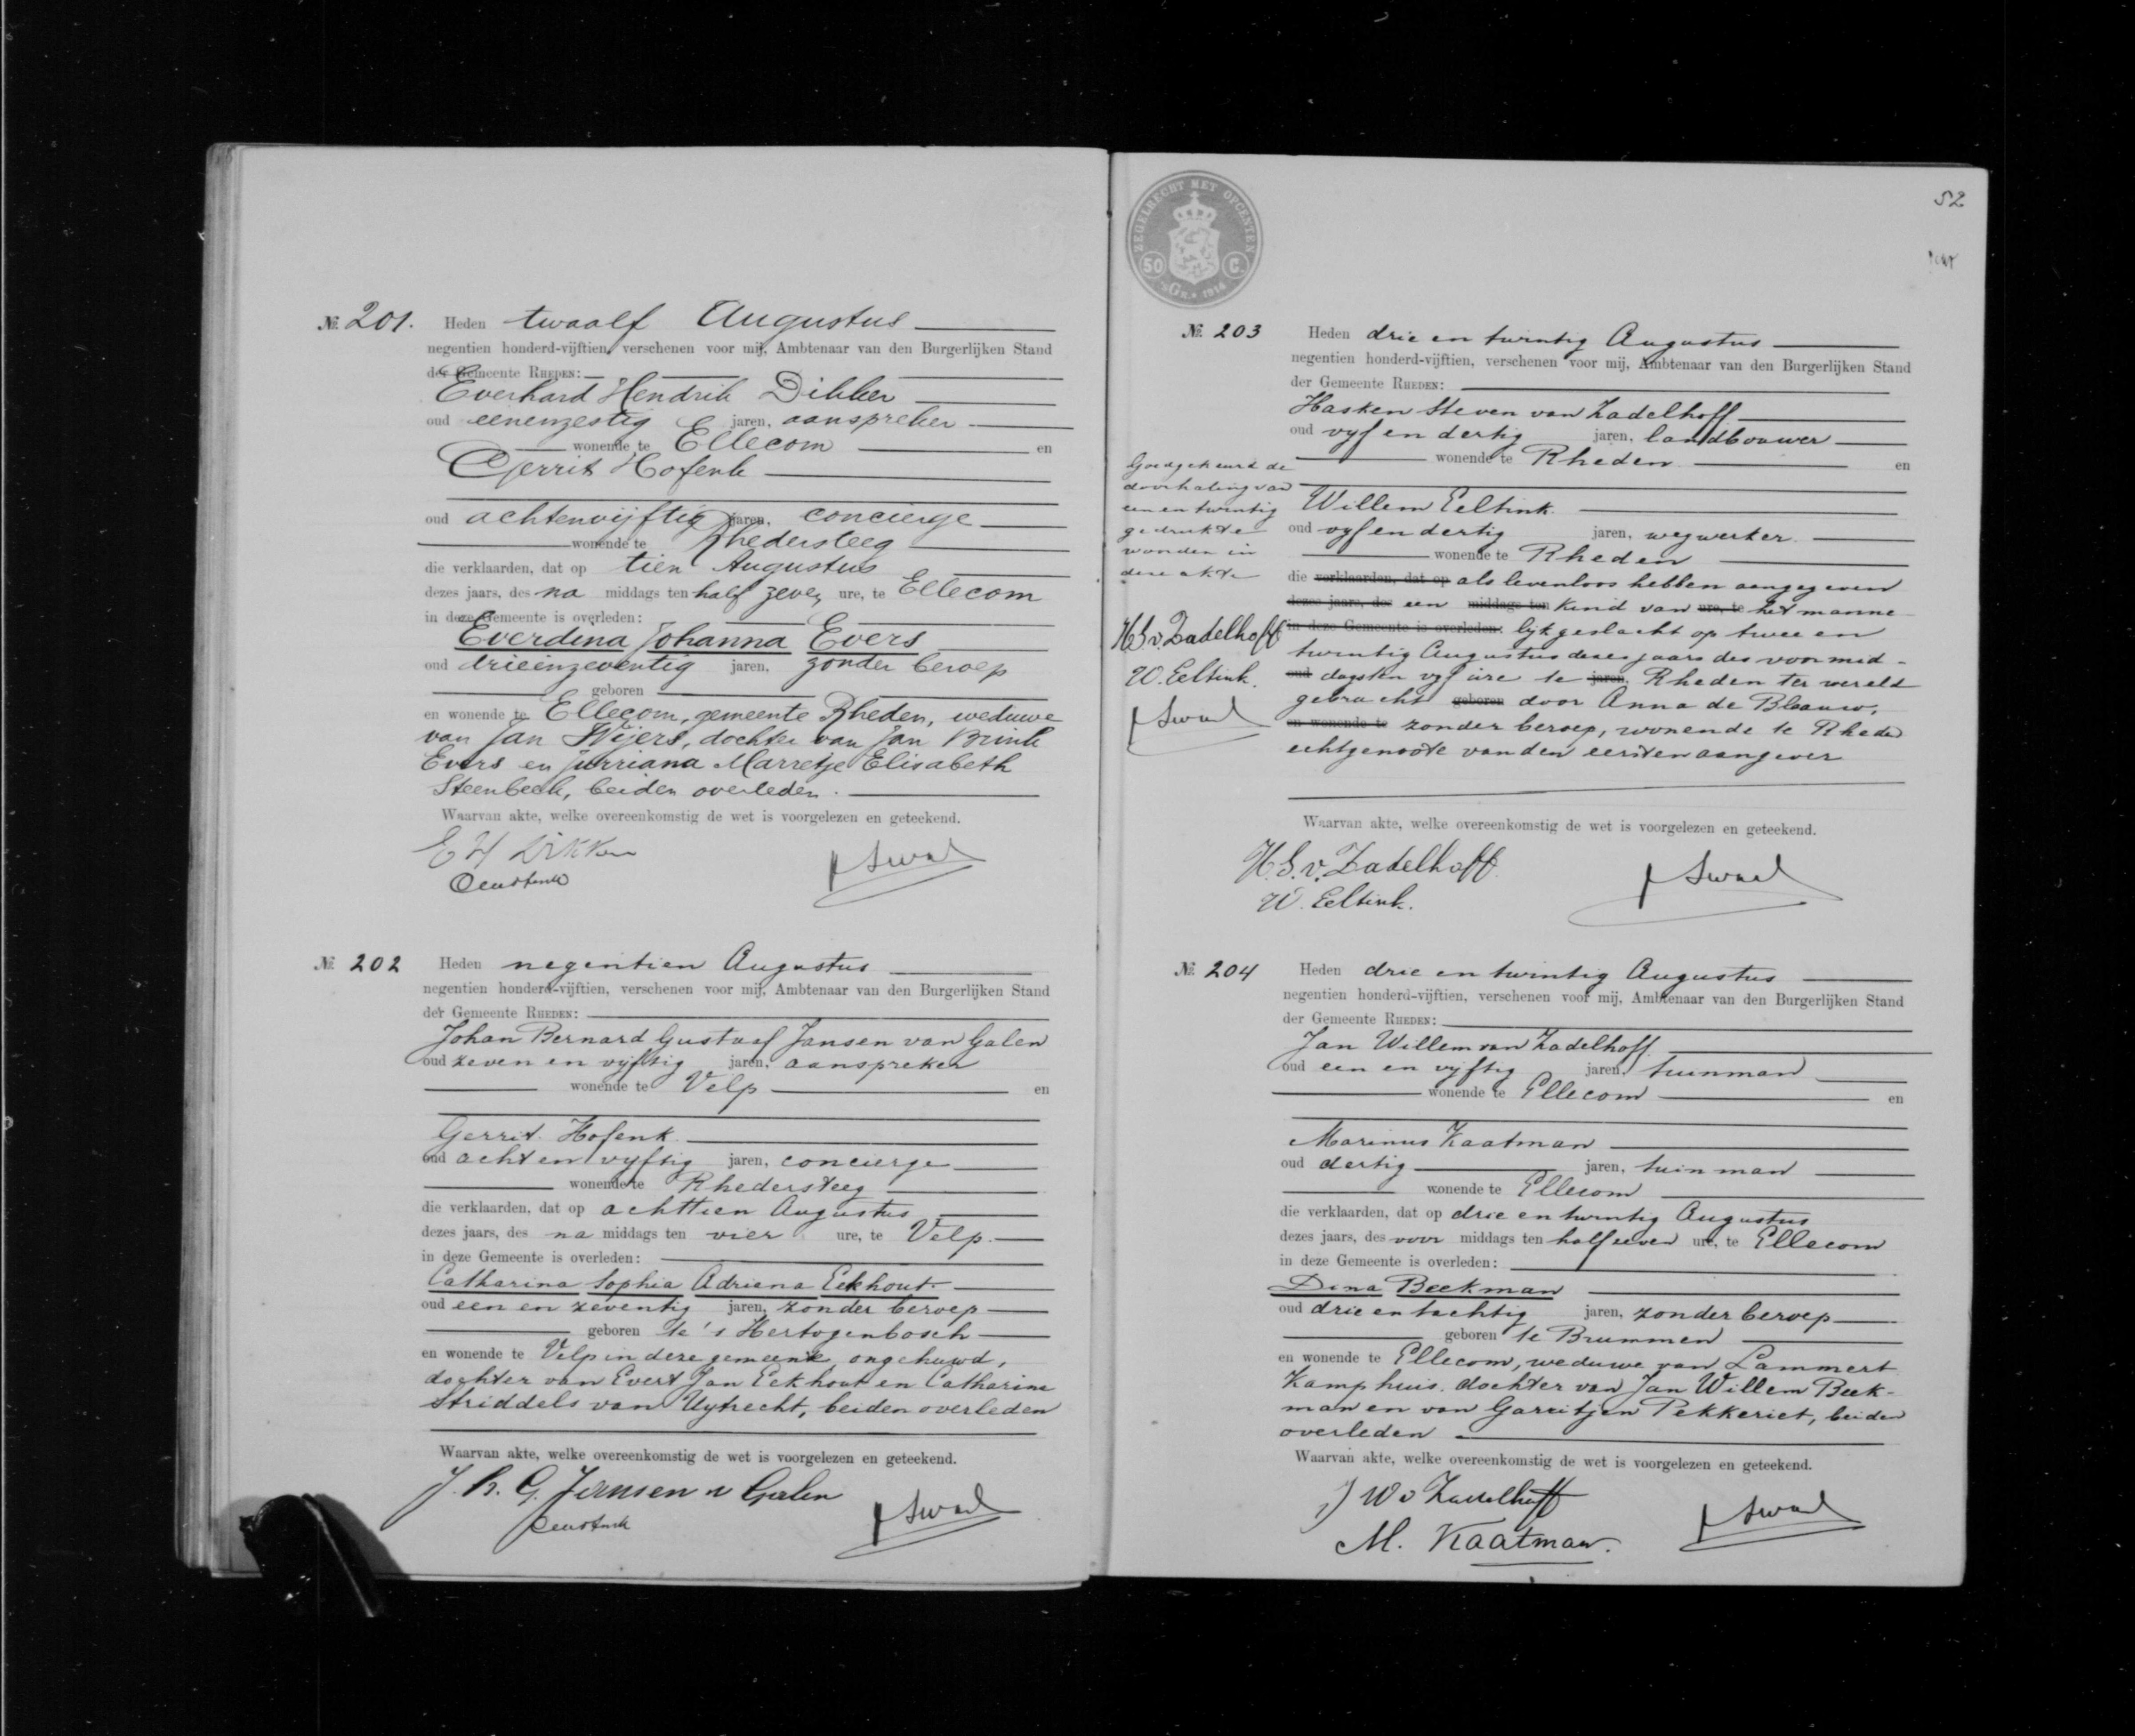 № 201. Heden twaalf Augustus
negentien honderd-vijftien, verschenen voor mij, Ambtenaar van den Burgerlijken Stand
der Gemeente RHEDEN:
Everhard Hendrik Dikker
oud eenenzestig jaren, aanspreker
wonende te Ellecom en
Gerrit Hofenk
oud achtenvijftig jaren, concierge
wonende te Rhedersteeg
die verklaarden, dat op tien Augustus
dezes jaars, des na middags ten half zeven ure, te Ellecom
in deze Gemeente is overleden:
Everdina Johanna Evers
oud drieënzeventig jaren, zonder beroep
geboren
en wonende te Ellecom, gemeente Rheden, weduwe
van Jan Weijers, dochter van Jan Brink
Evers en Jurriana Marretje Elisabeth
Steenbeek, beiden overleden.
Waarvan akte, welke overeenkomstig de wet is voorgelezen en geteekend.
E H Dikker
№ 202 Heden negentien Augustus
negentien honderd-vijftien, verschenen voor mij, Ambtenaar van den Burgerlijken Stand
der Gemeente RHEDEN:
Johan Bernard Gustaaf Jansen van Galen
oud zeven en vyftig jaren, aanspreker
wonende te Velp en
Gerrit Hofenk
oud acht en vyftig jaren, concierge
wonende te Rhedersteeg
die verklaarden, dat op achttien Augustus
dezes jaars, des na middags ten vier ure, te Velp
in deze Gemeente is overleden:
Catharina Sophia Adriana Eekhout
oud een en zeventig jaren, zonder beroep
geboren te 's Hertogenbosch
en wonende te Velp in deze gemeente, ongehuwd,
dochter van Evert Jan Eekhout en Catharina
Striddels van Uytrecht, beiden overleden
Waarvan akte, welke overeenkomstig de wet is voorgelezen en geteekend.
J. B. G. Jansen v Galen
52
ZEGELRECHT MET OPCENTEN
50 C.
№ 203 Heden drie en twintig Augustus
negentien honderd-vijftien, verschenen voor mij, Ambtenaar van den Burgerlijken Stand
der Gemeente RHEDEN:
Hasken Steven van Zadelhoff
oud vyf en dertig jaren, landbouwer
wonende te Rheden en
Willem Eeltink
oud vyf en dertig jaren, wegwerker
wonende te Rheden
die verklaarden, dat op als levenloos hebben aangegeven
dezes jaars, des een middags ten kind van ure, te het manne
in deze Gemeente is overleden: lijk geslacht op twee en
twintig Augustus dezes jaars des voormid-
oud dags ten vyf ure te jaren, Rheden ter wereld
gebracht geboren door Anna de Blaauw,
en wonende te zonder beroep, wonende te Rheden
echtgenoote van den eersten aangever
Goedgekeurd de
doorhaling van
een en twintig
gedrukte
woorden in
deze akte
H.S.v. Zadelhoff
W. Eeltink.
Waarvan akte, welke overeenkomstig de wet is voorgelezen en geteekend.
H.S.v. Zadelhoff.
W. Eeltink.
№ 204 Heden drie en twintig Augustus
negentien honderd-vijftien, verschenen voor mij, Ambtenaar van den Burgerlijken Stand
der Gemeente RHEDEN:
Jan Willem van Zadelhoff
oud een en vyftig jaren, tuinman
wonende te Ellecom en
Marinus Kaatman
oud dertig jaren, tuinman
wonende te Ellecom
die verklaarden, dat op drie en twintig Augustus
dezes jaars, des voor middags ten half zeven ure, te Ellecom
in deze Gemeente is overleden:
Dina Beekman
oud drie en tachtig jaren, zonder beroep
geboren te Brummen
en wonende te Ellecom, weduwe van Lammert
Kamphuis. dochter van Jan Willem Beek-
man en van Garritjen Pekkeriet, beiden
overleden
Waarvan akte, welke overeenkomstig de wet is voorgelezen en geteekend.
J W v Zadelhoff
M. Kaatman.